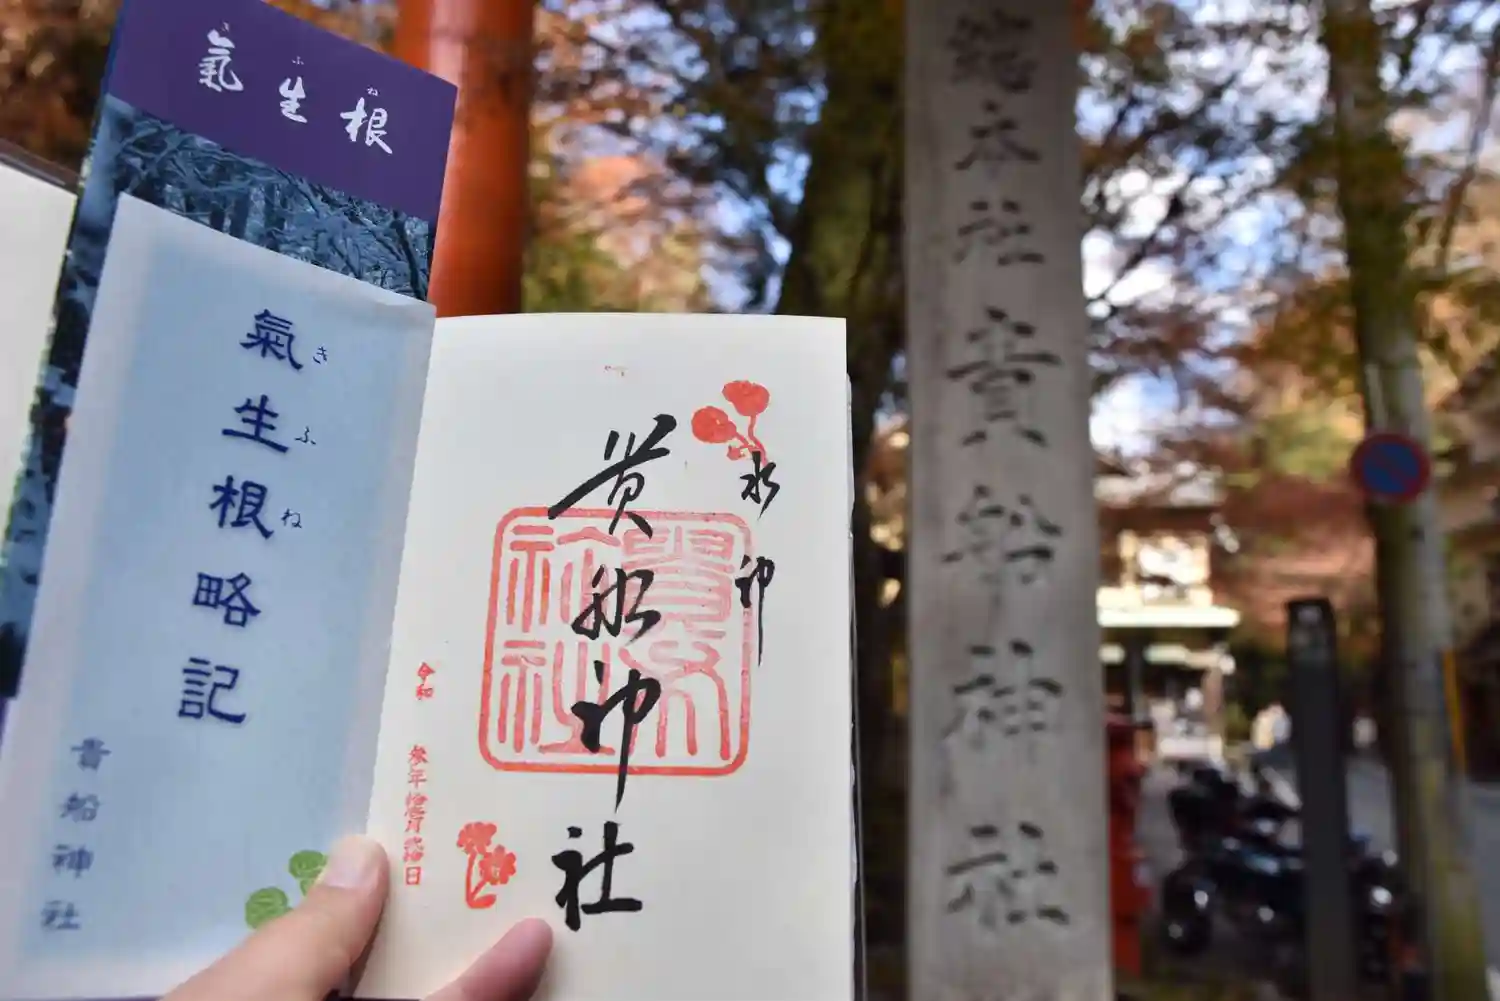 氣生根
きふね
氣生根略記
きふね
貴船神社
水神
貴船神社
貴船神社
令和
参年
日
総本社貴船神社